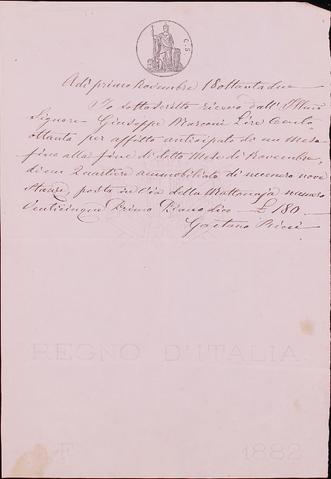 C. S.
Adì primo Novembre 18ottantadue
Io sottoscritto ricevo dall' Illmo
Signore Giuseppe Marconi Lire Cento
ottanta per affitto anticipato di un Mese
fino alla fine di detto Mese di Novembre,
di un Quartiere ammobiliato di numero nove
Stanze, posto in Via della Mattonaja numero
Venticinque Primo Piano dico — £ 180
Gaetano
REGNO D'ITALIA
1882